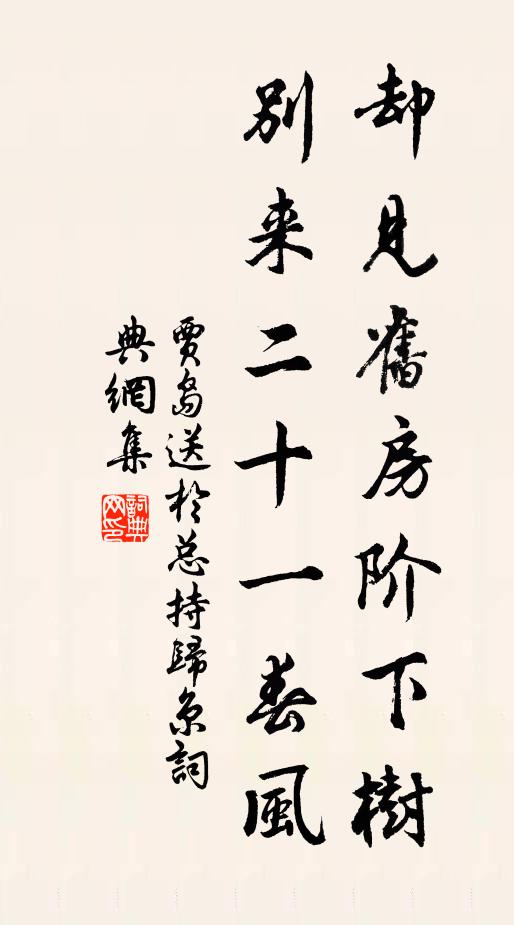 却見舊房阶下樹
別来二十一春風
賈島送於总持歸京詞
典網集
詞典网印